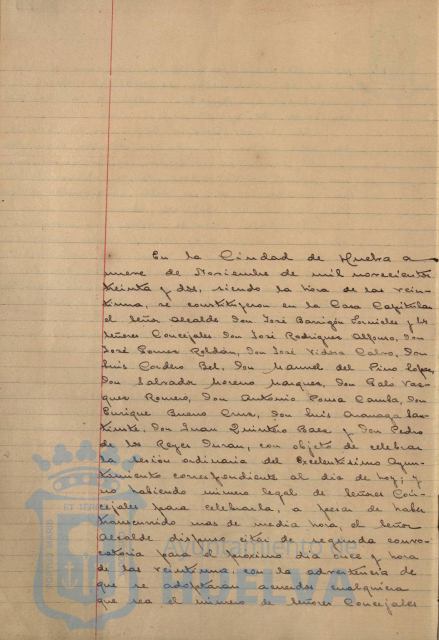 En la Ciudad de Huelva a
nueve de Noviembre de mil novecientos
treinta y dos, siendo la hora de las vein-
tiuna, se constituyeron en la Casa Capitular
el Señor Alcalde Don José Barrigón Fornieles y los
Señores Concejales Don José Rodriguez Alfonso, Don
José Gomez Roldán, Don José Videra Calvo, Don
Luis Cordero Bel, Don Manuel del Pino López,
Don Salvador Moreno Marquez, Don Galo Vaz-
quez Romero, Don Antonio Ponce Don
Enrique Bueno Cruz, Don Luis San-
Don Juan Quintero Baez y Don Pedro
de los Reyes Duran, con objeto de celebrar
la sesión ordinaria del Excelentísimo Ayun-
tamiento correspondiente al dia de hoy; y
no habiendo número legal de Señores Con-
cejales para celebrarla, a pesar de haber
transcurrido mas de media hora, el Señor
Alcalde dispuso citar de segunda convo-
catoria para el próximo dia once y hora
de las veintiuna, con la advertencia de
que se adoptarán acuerdos cualquiera
que sea el número de Señores Concejales
Ayuntamiento de
HUELVA